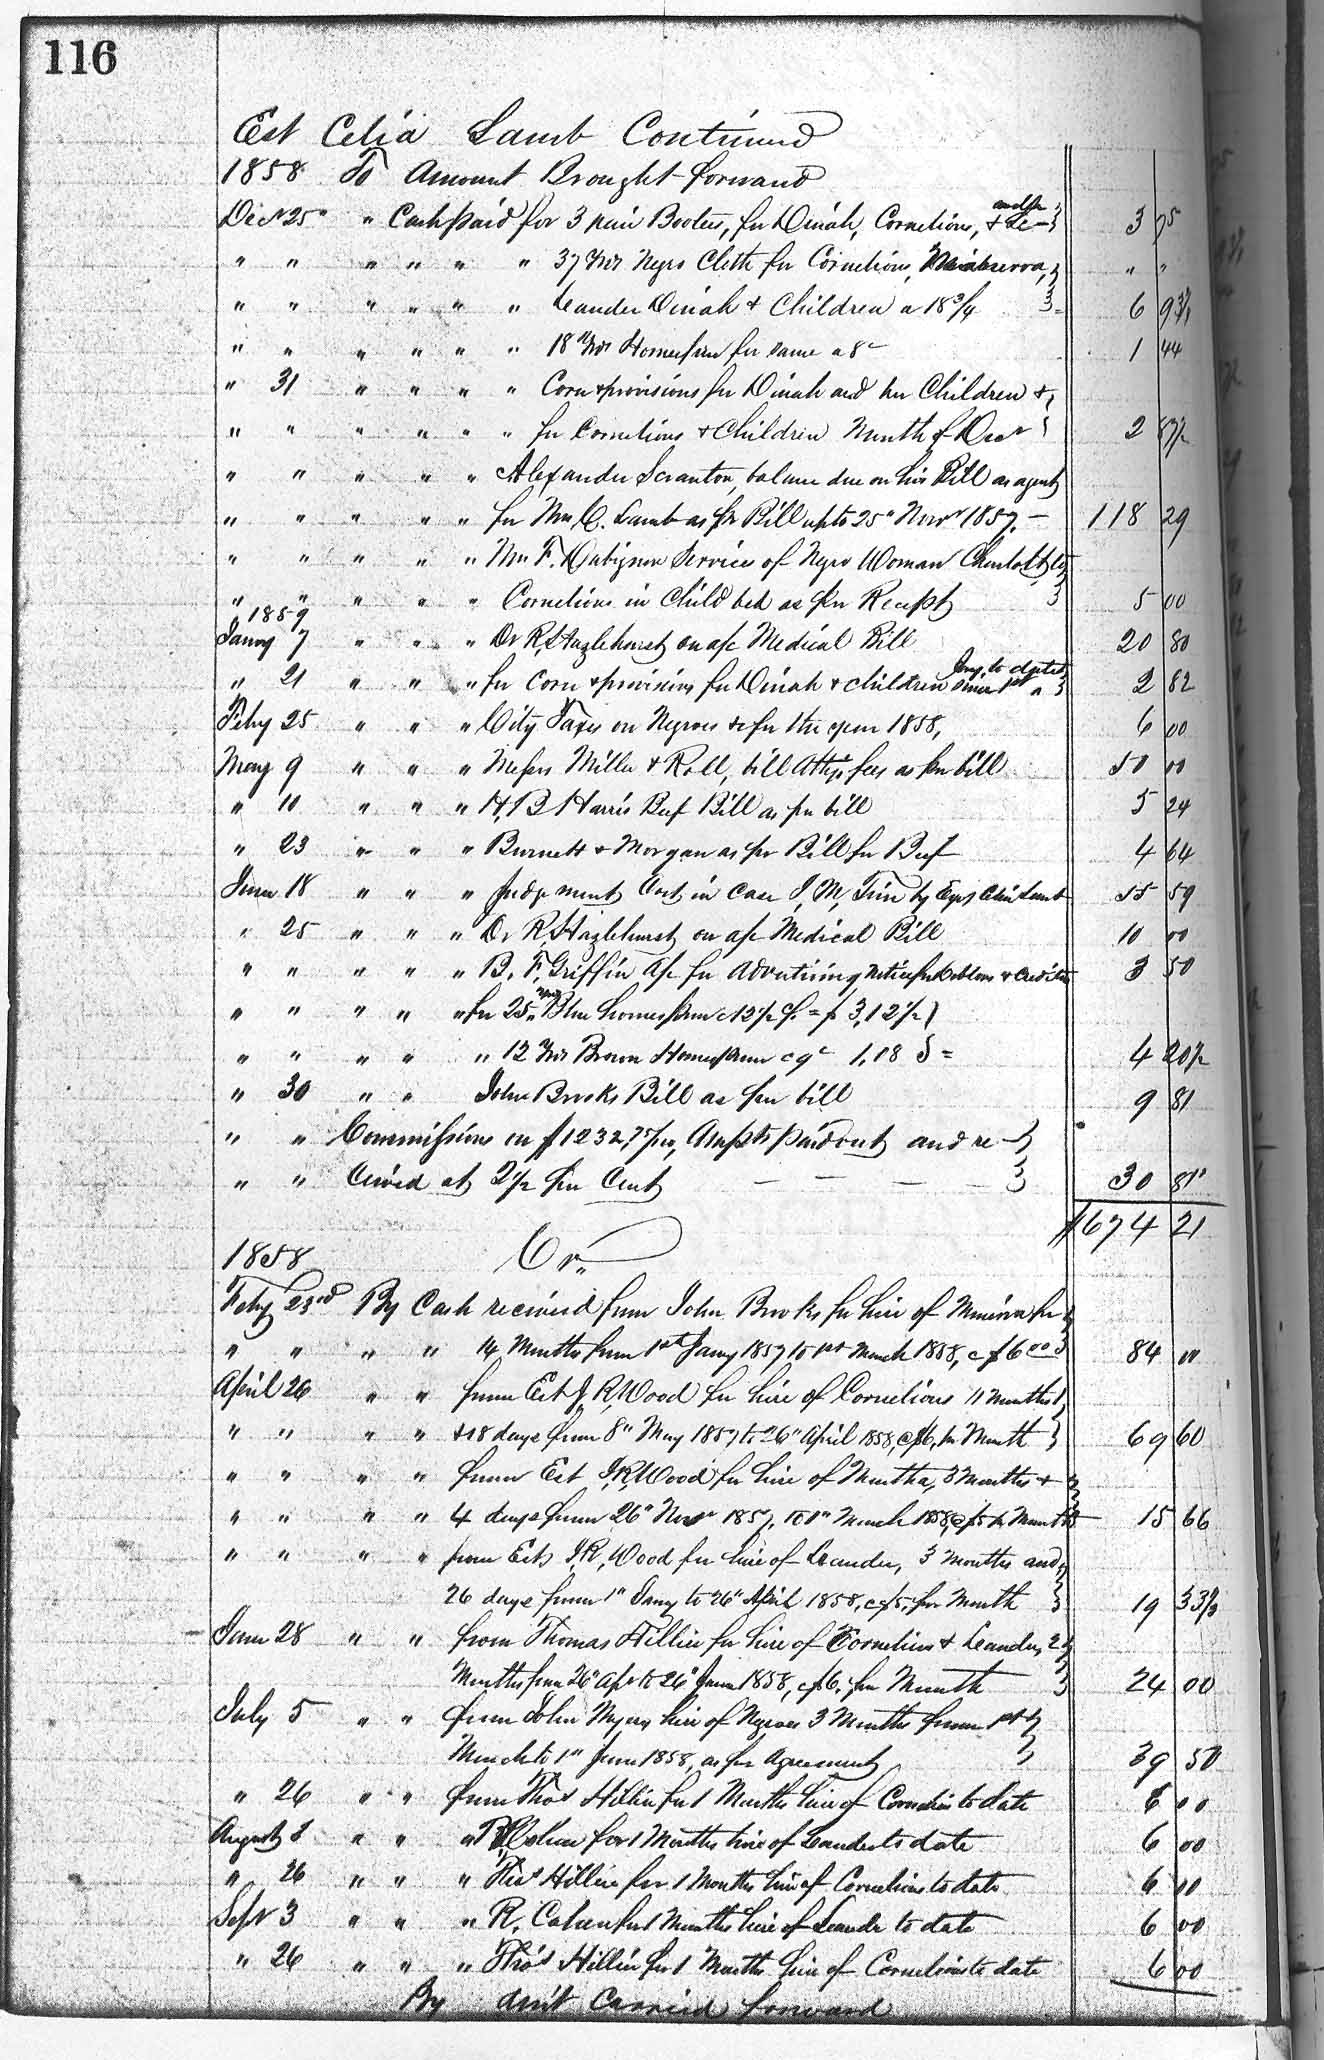 116
Est Celia Lamb Continued
1858 To Amount Brought forward
Decr 25" " Cash paid for 3 pair Bootees, for Dinah, Cornelious, & Le- 3 75
" " " " " " 37 Yds Negro Cloth for Cornelious, " "
" " " " " " Leander Dinah & Children a 18 3/4 6 93 3/4
" " " " " " 18 Yds Homespun for same a 8c 1 44
" 31 " " " " Corn & provisions for Dinah and her Children &
" " " " " " for Cornelious & Children Month of Decr 2 87 1/2
" " " " " Alexander Scranton, balance due on his Bill as agent
" " " " " for Mrs C. Lamb as pr Bill up to 25" Novr 1857. - 118 29
" " " " " Mrs F. Dubignon Services of Negro Woman Charlotte to
" " " " " Cornelious in Child bed as per Receipt 5 00
1859
Janry 7 " " " Dr R Hazlehurst on a/c Medical Bill 20 80
" 21 " " " for Corn & provisions for Dinah & children since 1st Jany to date 2 82
Feby 25 " " " City Taxes on Negroes &c for the year 1858, 6 00
May 9 " " " Messrs Miller & Roll, bill Attys fees as per bill 50 00
" 10 " " " H, B Harris Beef Bill as per bill 5 24
" 23 " " " Burnett & Morgan as per Bill for Beef 4 64
June 18 " " " Judgment Cost in case J, M, Tison by Exrs Celia Lamb 55 59
" 25 " " " Dr R, Hazlehurst on a/c Medical Bill 10 00
" " " " " B. F. Griffin A/c for Advertising notice for Debtors & Creditors 3 50
" " " " " for 25 yds Blue homespun c 12 1/2 c. = $3,12 1/2
" " " " " 12 Yds Brown Homespun c 9c 1.08 = 4 20 1/2
" 30 " " John Brooks Bill as per bill 9 81
" " Commissions on $1232, Amts paid out and re-
" " ceived at 2 1/2 per Cent - - - - 30 81
$674 21
1858 Cr.
Feby 23rd By Cash received from John Brooks for hire of Minerva for
" " " " 14 Months from 1st Jany 1857 to 1st March 1858, c $6 00 84 00
April 26 " " from Est J, R, Wood for hire of Cornelious 11 Months
" " " " & 18 days from 8" May 1857 to 26" April 1858, c $6, pr Month 69 60
" " " " from Est J, R, Wood for hire of Martha, 3 Months &
" " " " 4 days from 26" Novr 1857, to 1" March 1858, c $5 pr Month 15 66
" " " " from Est J, R, Wood for hire of Leander, 3 Months and
26 days from 1" Jany to 26" April 1858, c $5, per Month 19 33 1/3
June 28 " " from Thomas Hillier for hire of Cornelius & Leander, 2
Months from 26" Apr to 26" June 1858, c $6, per Month 24 00
July 5 " " from John Myers hire of Negroes 3 Months from 1st
March to 1st June 1858, as per Agreement 39 50
" 26 " " from Thos Hillier for 1 Months hire of Cornelius to date 6 00
August 3 " " " R, Cohen for 1 Months hire of Leander to date 6 00
" 26 " " " Thos Hillier for 1 Months hire of Cornelious to date 6 00
Sept 3 " " " R, Cohen for 1 Months hire of Leander to date 6 00
" 26 " " " Thos Hillier for 1 Months hire of Cornelious to date 6 00
By Am't Carried forward